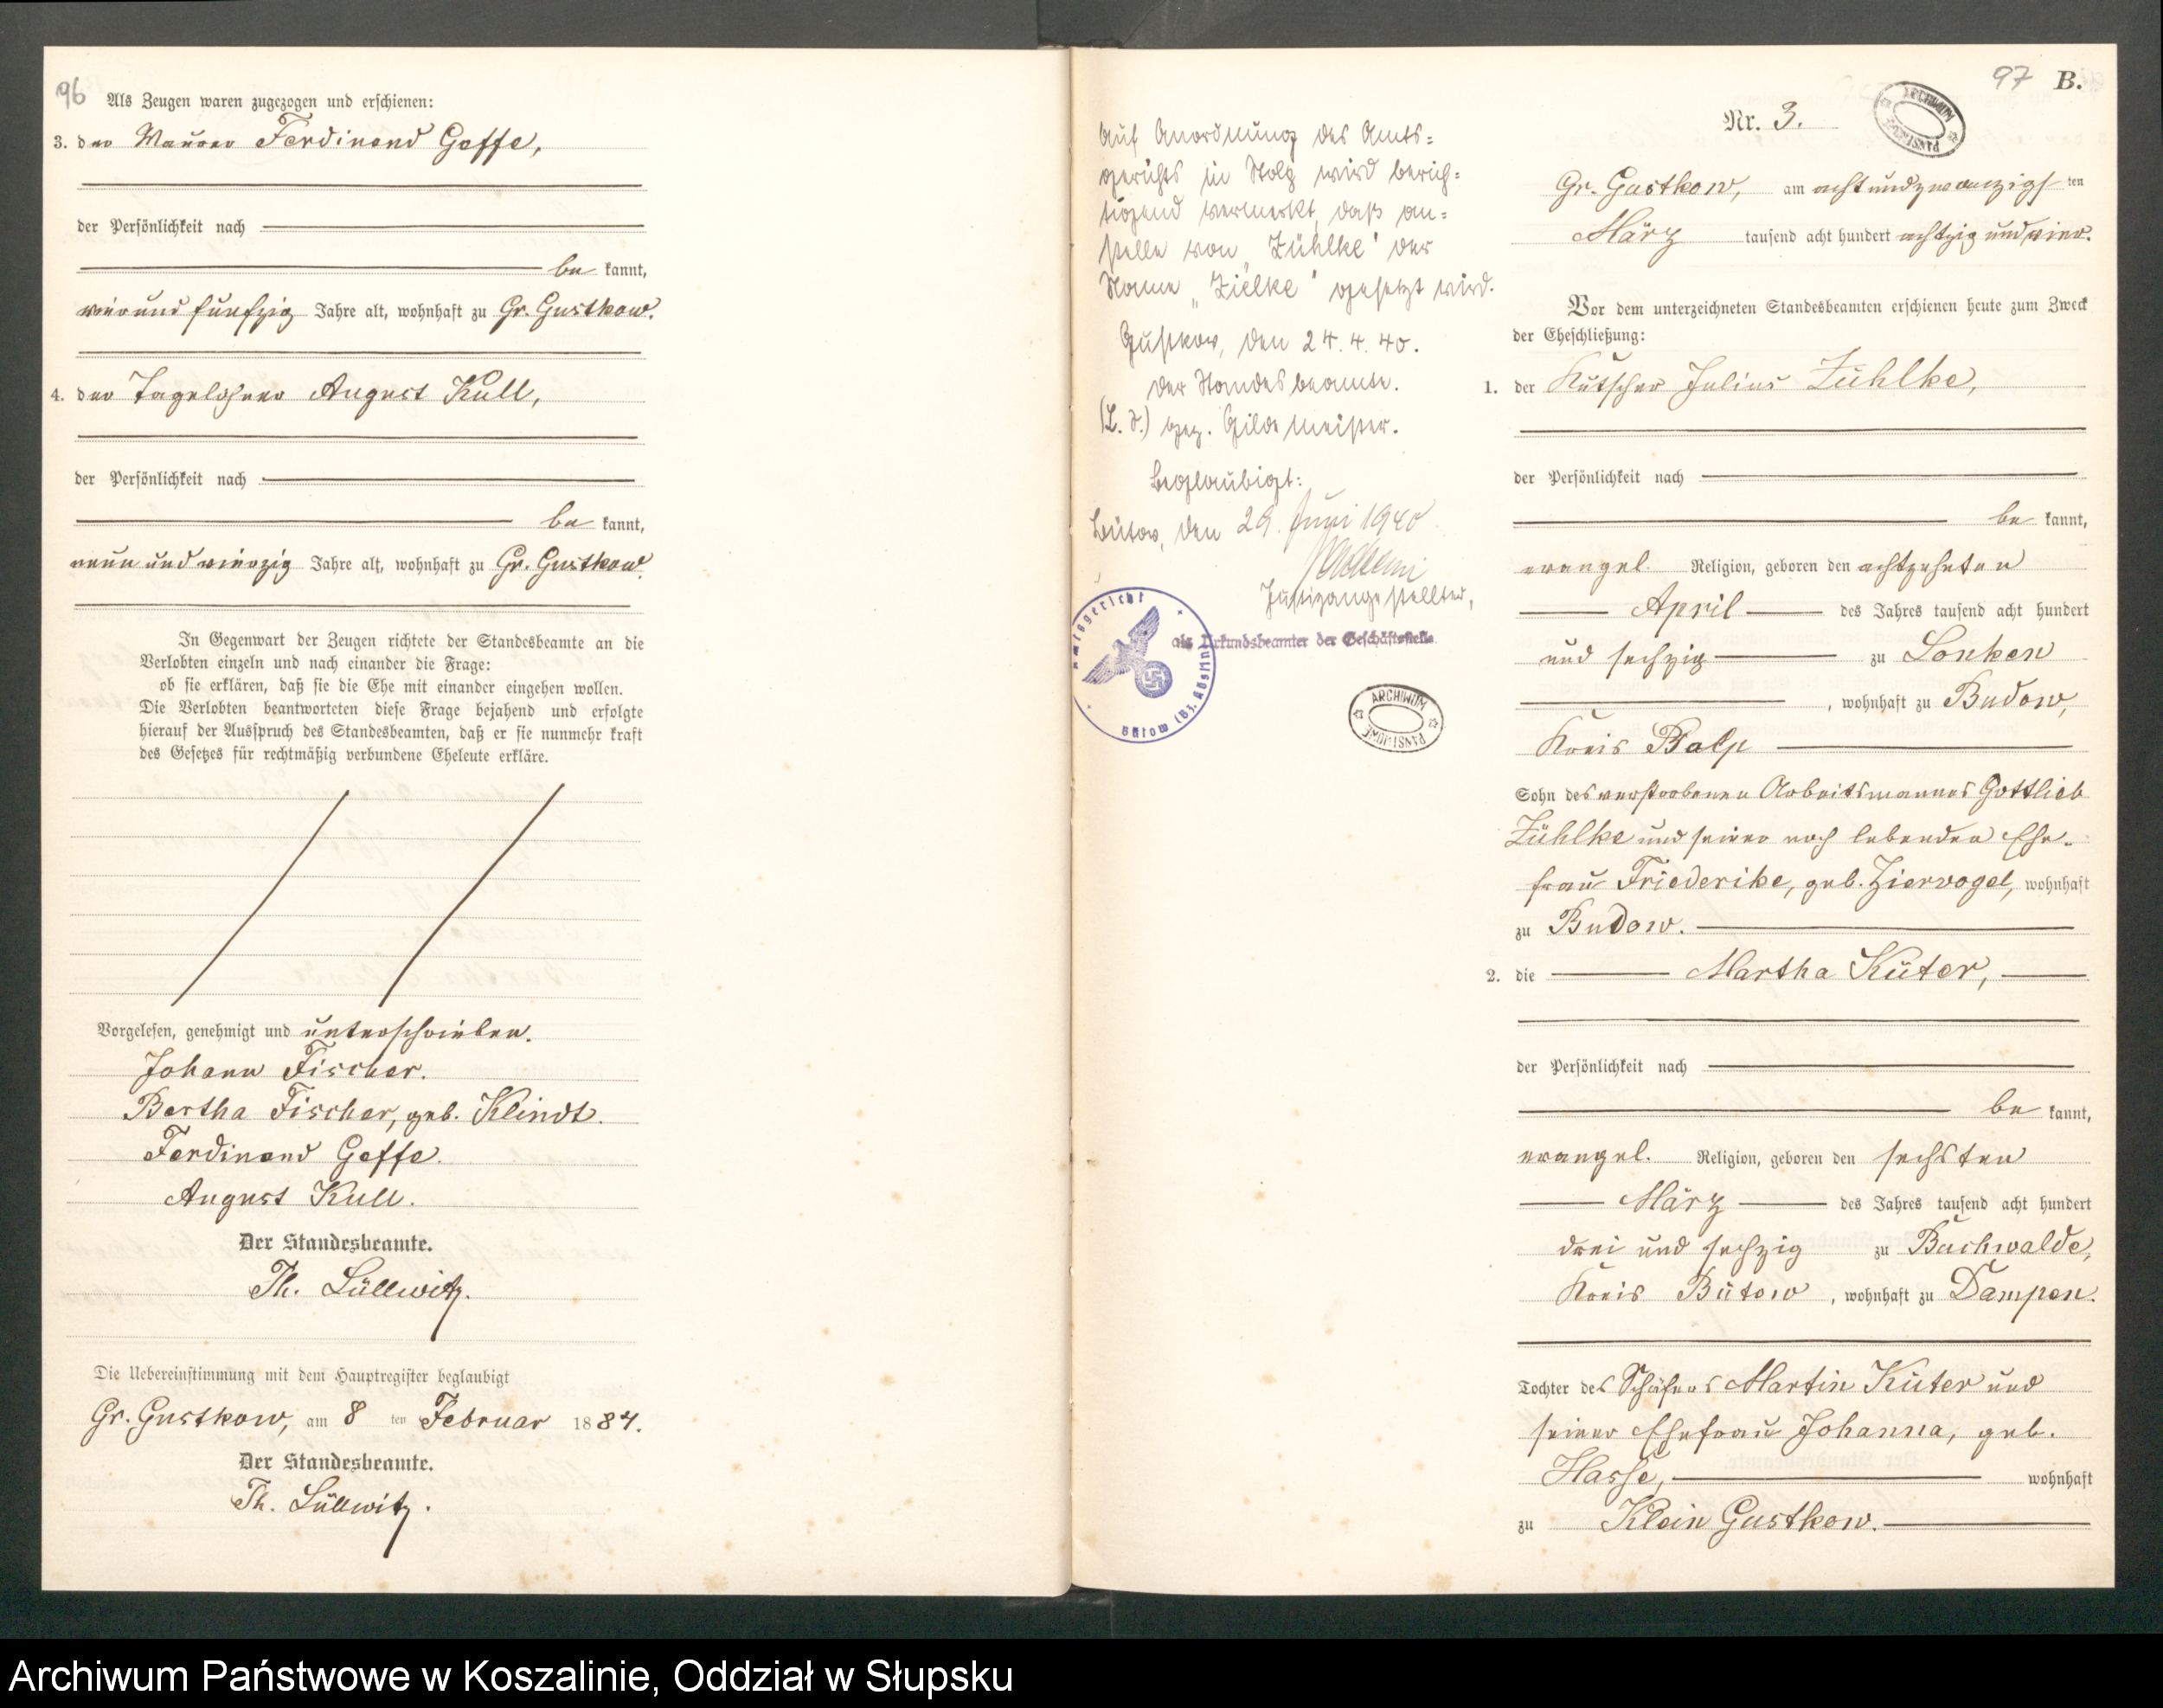 96 Als Zeugen waren zugezogen und erschienen:
3. der Maurer Ferdinand Geffe,
der Persönlichkeit nach
be kannt,
vierundfünfzig Jahre alt, wohnhaft zu Gr. Gustkow.
4. der Tagelöhner August Kull,
der Persönlichkeit nach
be kannt,
neun und vierzig Jahre alt, wohnhaft zu Gr. Gustkow.
In Gegenwart der Zeugen richtete der Standesbeamte an die
Verlobten einzeln und nach einander die Frage:
ob sie erklären, daß sie die Ehe mit einander eingehen wollen.
Die Verlobten beantworteten diese Frage bejahend und erfolgte
hierauf der Ausspruch des Standesbeamten, daß er sie nunmehr kraft
des Gesetzes für rechtmäßig verbundene Eheleute erkläre.
Vorgelesen, genehmigt und unterschrieben.
Johann Fischer.
Bertha Fischer, geb. Klindt.
Ferdinand Geffe.
August Kull.
Der Standesbeamte.
Th. Lüllwitz.
Die Uebereinstimmung mit dem Hauptregister beglaubigt
Gr. Gustkow, am 8 ten Februar 1884.
Der Standesbeamte.
Th. Lüllwitz.
Auf Anordnung des Amts=
gerichts in Stolp wird berich=
tigend vermerkt, daß an=
stelle von „Zühlke" der
Name „Zielke" gesetzt wird.
Gustkow, den 24. 4. 40.
Der Standesbeamte.
(L. S.) gez. Gildemeister.
Beglaubigt:
Bütow, den 29. Juni 1940
Justizangestellter,
als Urkundsbeamter der Geschäftsstelle
Amtsgericht
Bütow (Bz. Köslin)
ARCHIWUM
PAŃSTWOWE
97 B.
ARCHIWUM
PAŃSTWOWE
Nr. 3.
Gr. Gustkow, am achtundzwanzigsten
März tausend acht hundert achtzig und vier.
Vor dem unterzeichneten Standesbeamten erschienen heute zum Zweck
der Eheschließung:
1. der Kutscher Julius Zühlke,
der Persönlichkeit nach
be kannt,
evangel. Religion, geboren den achtzehnten
April des Jahres tausend acht hundert
und sechzig zu Lonken
, wohnhaft zu Budow,
Kreis Stolp
Sohn des verstorbenen Arbeitsmannes Gottlieb
Zühlke und seiner noch lebenden Ehe-
frau Friederike, geb. Ziervogel, wohnhaft
zu Budow.
2. die Martha Küter,
der Persönlichkeit nach
be kannt,
evangel. Religion, geboren den sechsten
März des Jahres tausend acht hundert
drei und sechzig zu Buchwalde,
Kreis Bütow, wohnhaft zu Dampen.
Tochter des Schäfers Martin Küter und
seiner Ehefrau Johanna, geb.
Hasse, wohnhaft
zu Klein Gustkow.
Archiwum Państwowe w Koszalinie, Oddział w Słupsku